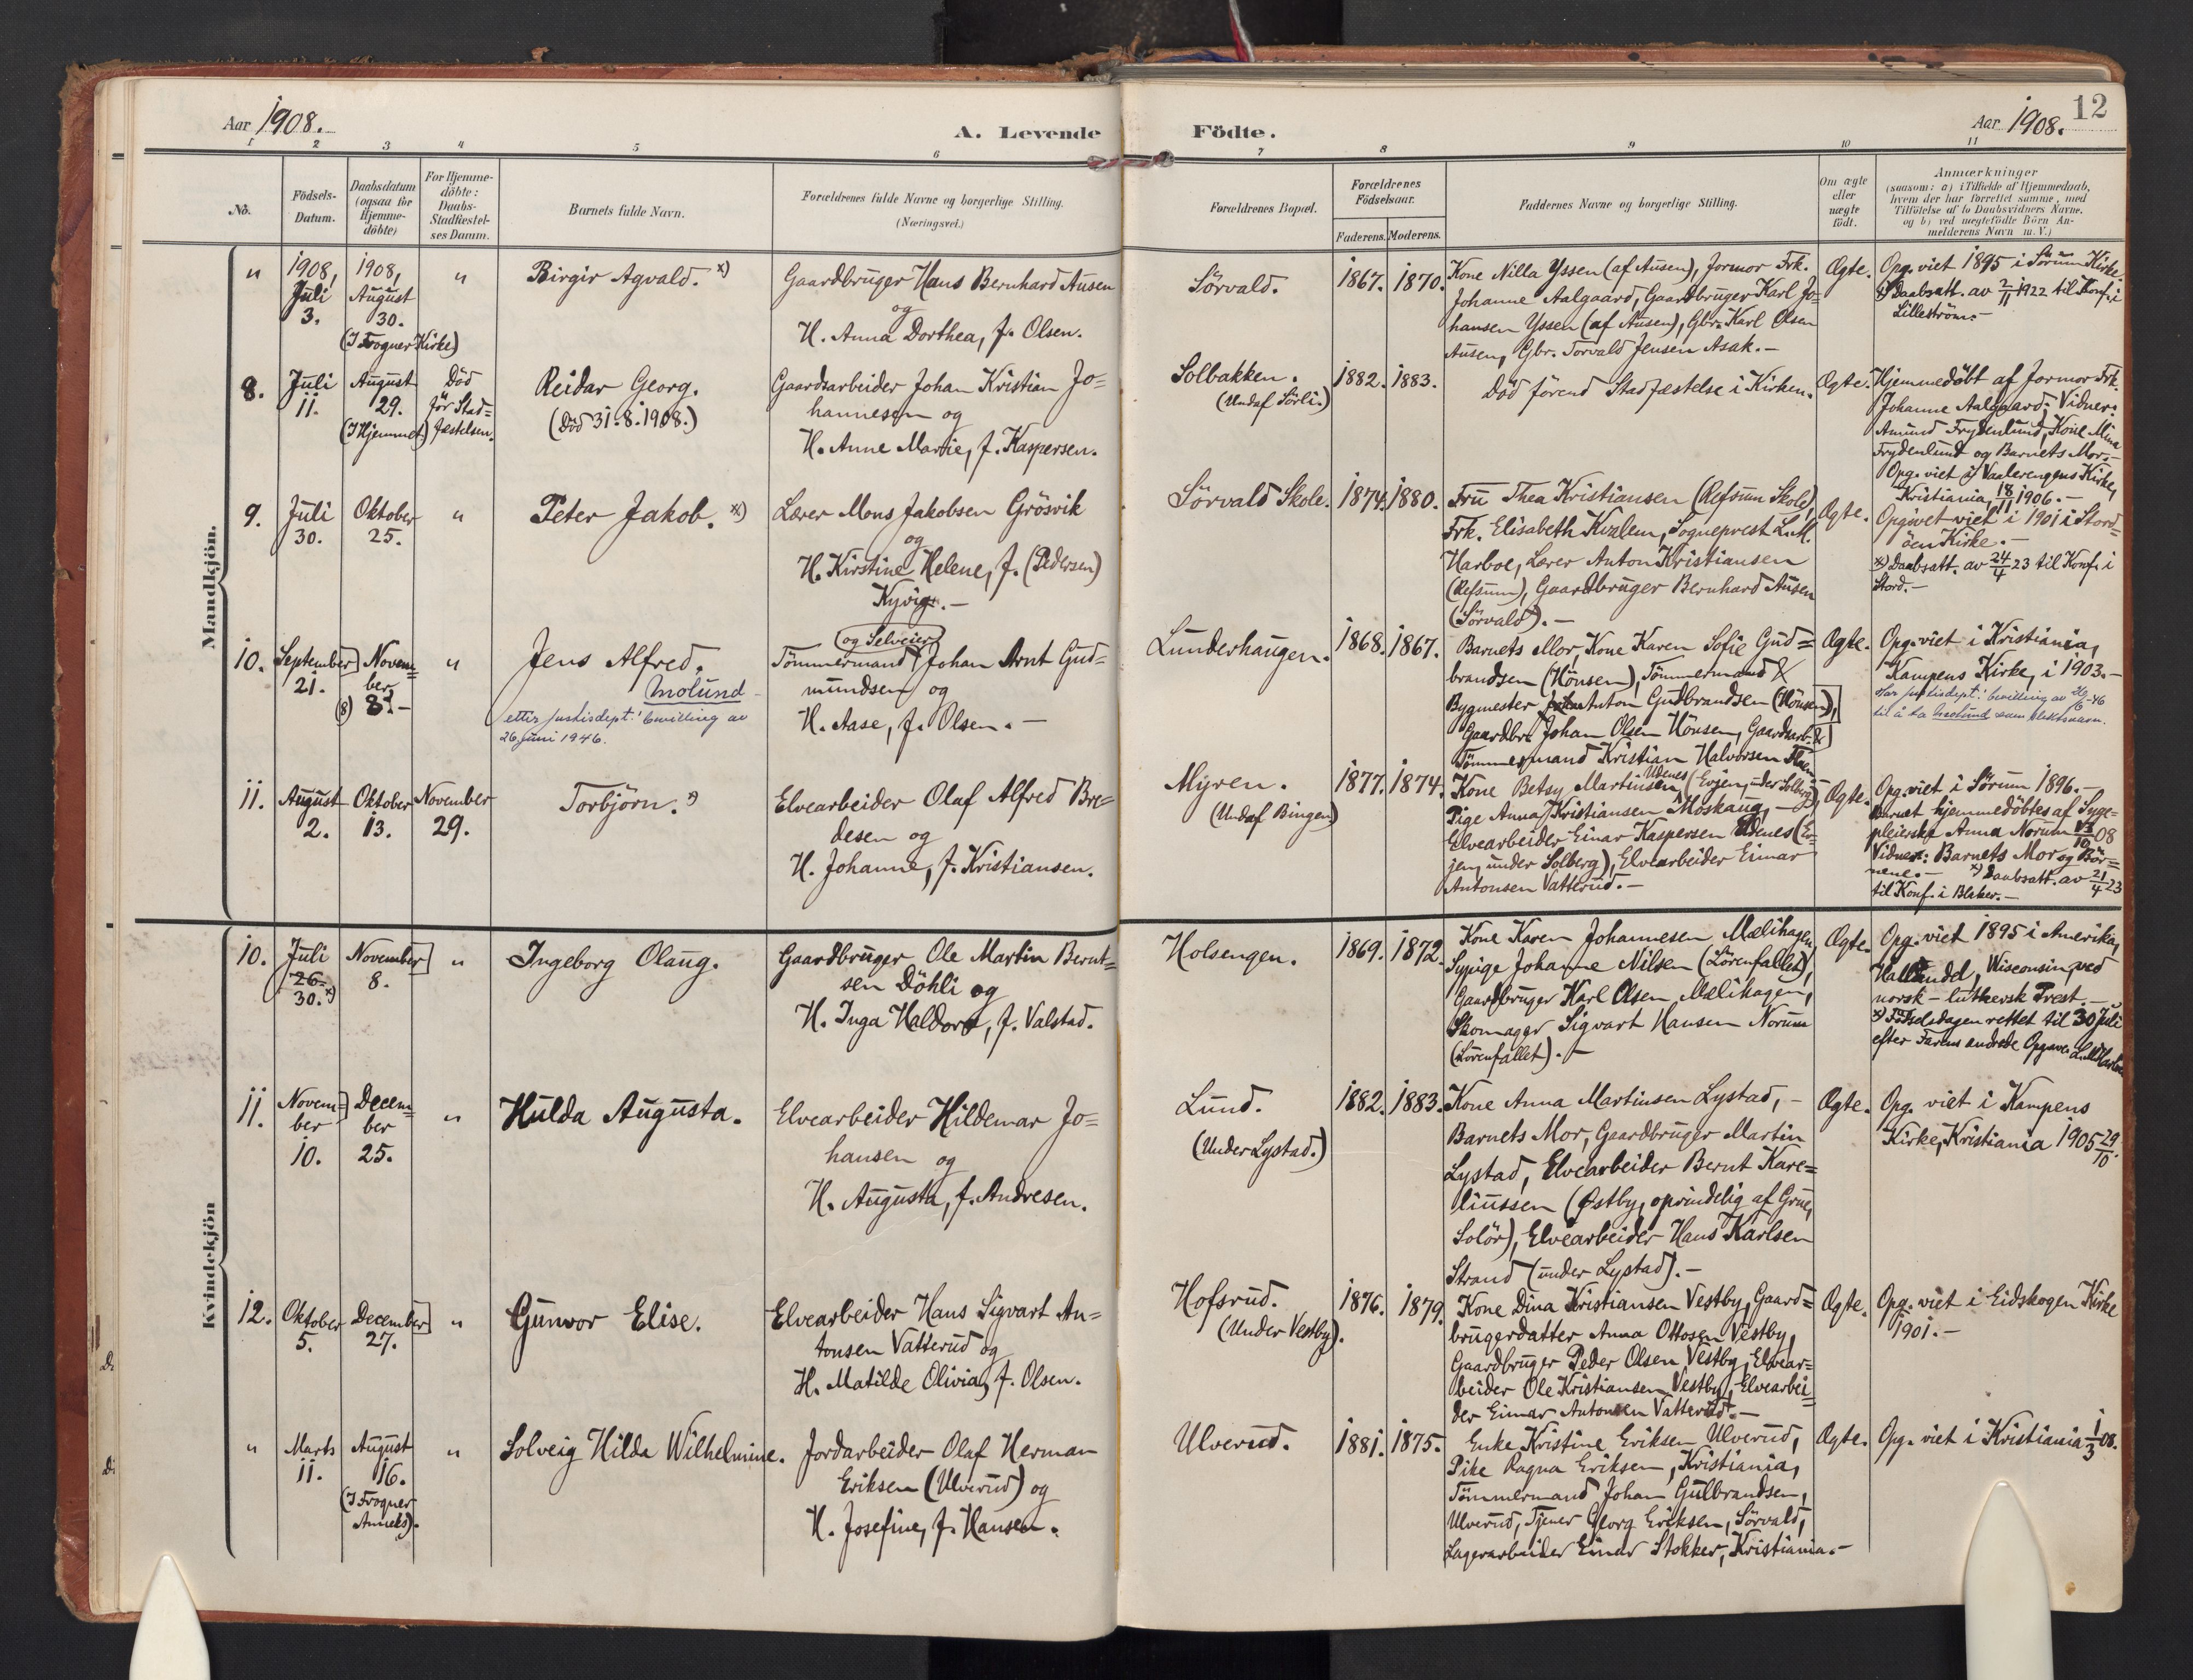 Aar 1908.
A. Levende Födte.
Aar 1908. 12
1 2 3 4 5 6 7 8 9 10 11
No.
Födsels-
Datum.
Daabsdatum
(ogsaa for
Hjemme-
döbte)
For Hjemme-
döbte:
Daabs-
Stadfæstel-
ses Datum.
Barnets fulde Navn.
Forældrenes fulde Navne og borgerlige Stilling.
(Næringsvei.)
Forældrenes Bopæl.
Forældrenes
Födselsaar.
Faderens. Moderens.
Faddernes Navne og borgerlige Stilling.
Om ægte
eller
uægte
födt.
Anmærkninger
(saasom: a) i Tilfælde af Hjemmedaab,
hvem der har forrettet samme, med
Tilföielse af to Daabsvidners Navne.
og b) ved uægtefödte Börn An-
melderens Navn m. V.)
Mandkjön.
"
1908,
Juli
3.
1908,
August
30.
(I Frogner Kirke)
"
Birgir Agvald. x)
Gaardbruger Hans Bernhard Ausen
og
H. Anna Dorthea, f. Olsen.
Sörvald.
1867. 1870.
Kone Nilla Yssen (af Ausen), Jormor Frk.
Johanne Aalgaard, Gaardbruger Karl Jo-
hansen Yssen (af Ausen), Gbr. Karl Olsen
Ausen, Gbr. Torvald Jensen Asak. -
Ægte.
Opg. viet 1895 i Sörum Kirke.
x) Daabsatt. av 2/11 1922 til Konf. i
Lilleström. -
8.
Juli
11.
August
29.
(I Hjemmet)
Död
för Stad=
fæstelsen.
Reidar Georg.
(Död 31.8.1908.)
Gaardsarbeider Johan Kristian Jo=
hannesen og
H. Anne Marie, f. Kaspersen.
Solbakken.
(Undaf Sörli.)
1882. 1883.
Död förend Stadfæstelse i Kirken.
Ægte.
Hjemmedöbt af Jormor Frk.
Johanne Aalgaard; Vidner:
Amund Frydenlund, Kone Mina
Frydenlund og Barnets Mor. -
Opg. viet i Vaalerengens Kirke,
Kristiania, 18/11 1906. -
9.
Juli
30.
Oktober
25.
"
Peter Jakob. x)
Lærer Mons Jakobsen Grösvik
og
H. Kirstine Helene, f. (Pedersen)
Kyvig. -
Sörvald Skole.
1874. 1880.
Fru Thea Kristiansen (Refsum Skole),
Frk. Elisabeth Kvalem, Sogneprest L.M.
Harboe, Lærer Anton Kristiansen
(Refsum), Gaardbruger Bernhard Ausen
(Sörvald). -
Ægte.
Opgivet viet i 1901 i Stord=
öen Kirke. -
x) Daabsatt. av 24/4 23 til Konf. i
Stord. -
10.
September
21.
Novem=
ber
(8) 8. -
"
Jens Alfred.
Molund
etter justisdept.' bevilling av
26 juni 1946.
og Selveier
Tömmermand Johan Arnt Gud=
mundsen og
H. Aase, f. Olsen. -
Lunderhaugen.
1868. 1867.
Barnets Mor, Kone Karen Sofie Gud=
brandsen (Hönsen), Tömmermand &
Bygmester Anton Gudbrandsen (Hönsen),
Gaardbr. Johan Olsen Hönsen, Gaardsarb. &
Tömmermand Kristian Halvorsen
Ægte.
Opg. viet i Kristiania,
Kampens Kirke, i 1903. -
Har justisdept.' bevilling av 26/6-46
til å ta Molund som slektsnavn.
11.
August
2.
Oktober
13.
November
29.
Torbjörn. x)
Elvearbeider Olaf Alfred Bre=
desen og
H. Johanne, f. Kristiansen.
Myren.
(Undaf Bingen)
1877. 1874.
Kone Betsy Martinsen Udenes (Evjen, under Solberg),
Pige Anna Kristiansen Moskaug, -
Elvearbeider Einar Kaspersen Udenes (Ev-
jen, under Solberg), Elvearbeider Eimar
Antonsen Vatterud. -
Ægte.
Opg. viet i Sörum 1896. -
Barnet hjemmedöbtes af Syge=
pleierske Anna Norum 13/10 08
Vidner: Barnets Mor og Bör=
nene. - x) Daabsatt. av 21/4 23
til Konf. i Blaker. -
Kvindekjön
10.
Juli
26.
30. x)
November
8.
"
Ingeborg Olaug.
Gaardbruger Ole Martin Bernt=
sen Döhli og
H. Inga Haldora, f. Valstad.
Holsengen.
1869. 1872.
Kone Karen Johannesen Mælihagen,
Sypige Johanne Nilsen (Lörenfallet),
Gaardbruger Karl Olsen Mælihagen,
Skomager Sigvart Hansen Norum
(Lörenfallet). -
Ægte.
Opg. viet 1895 i Amerika,
Wisconsin, ved
norsk-luthersk Prest. -
x) Födselsdagen rettet til 30 Juli
efter Farens endrede Opgave. L.M.Harboe
11.
Novem=
ber
10.
Decem=
ber
25.
"
Hulda Augusta.
Elvearbeider Hildemar Jo=
hansen og
H. Augusta, f. Andresen.
Lund.
(Under Lystad.)
1882. 1883.
Kone Anna Martinsen Lystad, -
Barnets Mor, Gaardbruger Martin
Lystad, Elvearbeider Bernt Kare=
liussen (Østby, oprindelig af Grue,
Solör), Elvearbeider Hans Karlsen
Strand (under Lystad). -
Ægte.
Opg. viet i Kampens
Kirke, Kristiania 1905 29/10.
12.
Oktober
5.
December
27.
"
Gunvor Elise.
Elvearbeider Hans Sigvart An=
tonsen Vatterud og
H. Matilde Olivia, f. Olsen.
Hofsrud.
(Under Vestby).
1876. 1879.
Kone Dina Kristiansen Vestby, Gaard=
brugerdatter Anna Ottosen Vestby,
Gaardbruger Peder Olsen Vestby, Elvear=
beider Ole Kristiansen Vestby, Elvearbei=
der Eimar Antonsen Vatterud. -
Ægte.
Opg. viet i Eidskogen Kirke
1901. -
"
Marts
11.
August
16.
(I Frogner
Anneks).
"
Solveig Hilda Wilhelmine.
Jordarbeider Olaf Herman
Eriksen (Ulverud) og
H. Josefine, f. Hansen.
Ulverud.
1881. 1875.
Enke Kristine Eriksen Ulverud,
Pike Ragna Eriksen, Kristiania,
Tömmermand Johan Gulbrandsen,
Ulverud, Tjener Georg Eriksen, Sörvald,
Lagerarbeider Einar Stokker, Kristiania. -
Ægte.
Opg. viet i Kristiania 1/3 08.